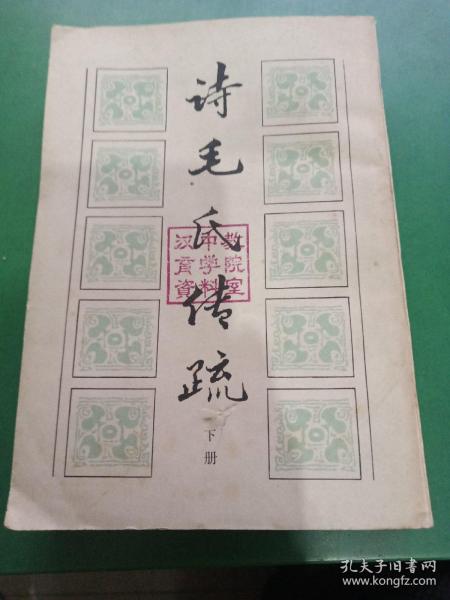 诗毛氏传疏
下册
汉中教
育学院
资料室
孔夫子旧书网
www.kongfz.com